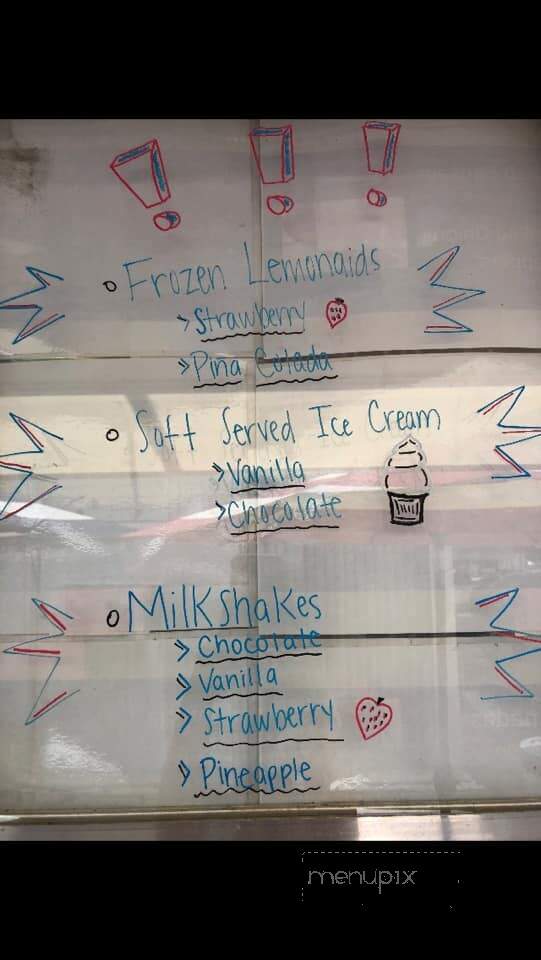 Frozen Lemonaids
Strawberry
Pina Colada
Soft Served Ice Cream
Vanilla
Chocolate
Milkshakes
Chocolate
Vanilla
Strawberry
Pineapple
menupix